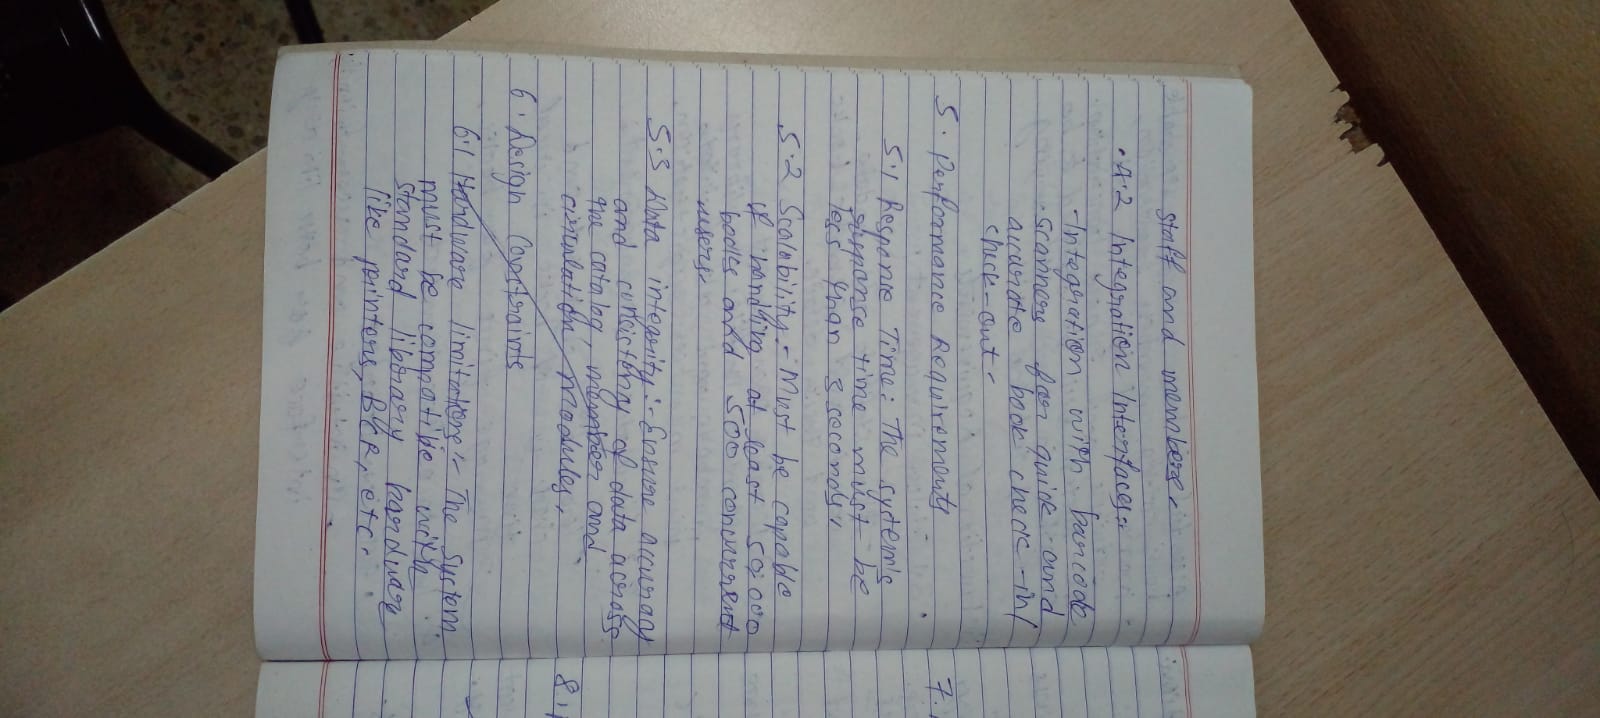 staff and members.
• 4.2 Integration Interfaces:
- Integration with barcode
scanners for quick and
accurate book check-in/
check-out.
5. Performance Requirements
5.1 Response Time: The system's
response time must be
less than 3 seconds.
5.2 Scalability:- Must be capable
of handling at least 50,000
books and 500 concurrent
users.
5.3 Data integrity:- Ensure accuracy
and consistency of data across
the catalog, member and
circulation modules.
6. Design Constraints
6.1 Hardware limitations:- The System
must be compatible with
standard library hardware
like printers, BCR, etc.
7.
8.1